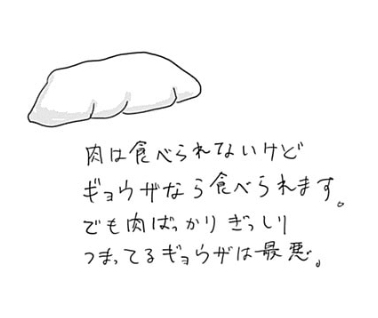 肉は食べられないけど
ギョウザなら食べられます。
でも肉ばっかりぎっしり
つまってるギョウザは最悪。